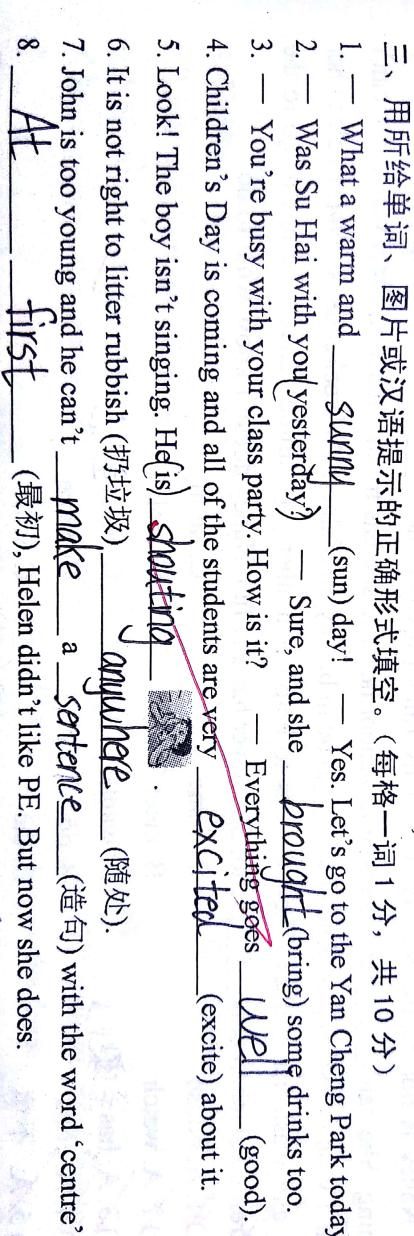 三、用所给单词、图片或汉语提示的正确形式填空。(每格一词1分，共10分)
1. — What a warm and sunny (sun) day! — Yes. Let's go to the Yan Cheng Park today
2. — Was Su Hai with you yesterday? — Sure, and she brought (bring) some drinks too.
3. — You're busy with your class party. How is it? — Everything goes well (good).
4. Children's Day is coming and all of the students are very excited (excite) about it.
5. Look! The boy isn't singing. He is shouting .
6. It is not right to litter rubbish (扔垃圾) anywhere (随处).
7. John is too young and he can't make a sentence (造句) with the word 'centre'
8. At first (最初), Helen didn't like PE. But now she does.